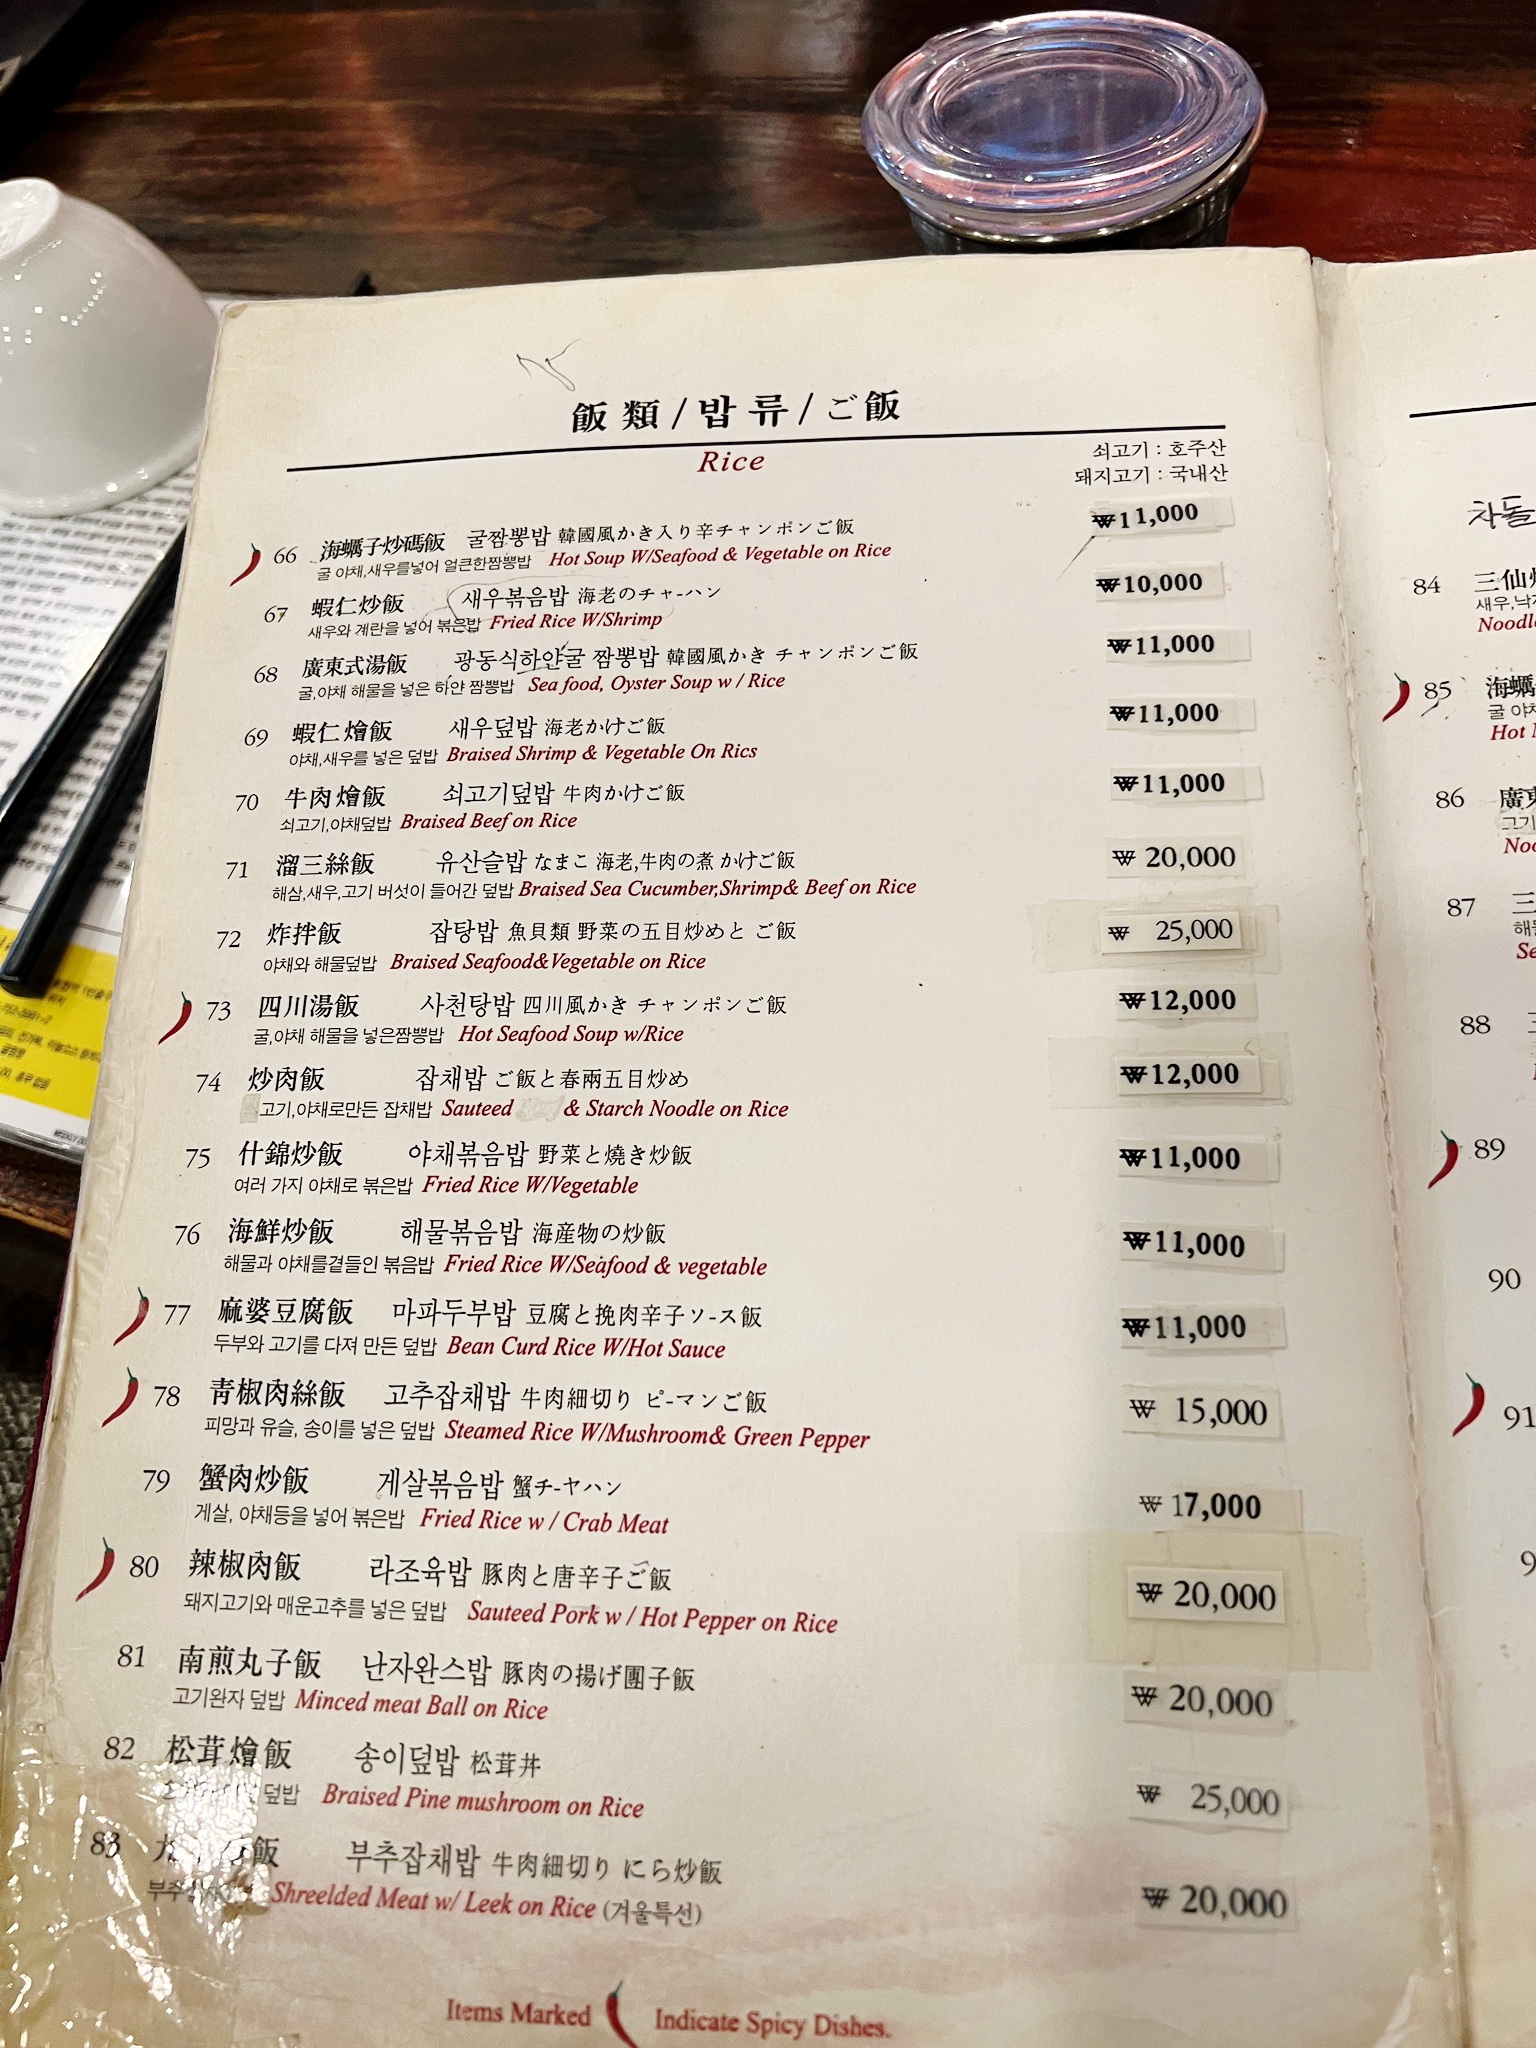 飯 類 / 밥 류 / ご飯
Rice
쇠고기 : 호주산
돼지고기 : 국내산
66 海蠣子炒碼飯 굴짬뽕밥 韓國風かき入り辛チャンポンご飯 ₩11,000
굴 야채,새우를넣어 얼큰한짬뽕밥 Hot Soup W/Seafood & Vegetable on Rice
67 蝦仁炒飯 새우볶음밥 海老のチャ-ハン ₩10,000
새우와 계란을 넣어 볶은밥 Fried Rice W/Shrimp
68 廣東式湯飯 광동식하얀굴 짬뽕밥 韓國風かき チャンポンご飯 ₩11,000
굴,야채 해물을 넣은 하얀 짬뽕밥 Sea food, Oyster Soup w / Rice
69 蝦仁燴飯 새우덮밥 海老かけご飯 ₩11,000
야채,새우를 넣은 덮밥 Braised Shrimp & Vegetable On Rics
70 牛肉燴飯 쇠고기덮밥 牛肉かけご飯 ₩11,000
쇠고기,야채덮밥 Braised Beef on Rice
71 溜三絲飯 유산슬밥 なまこ 海老,牛肉の煮 かけご飯 ₩ 20,000
해삼,새우,고기 버섯이 들어간 덮밥 Braised Sea Cucumber,Shrimp& Beef on Rice
72 炸拌飯 잡탕밥 魚貝類 野菜の五目炒めと ご飯 ₩ 25,000
야채와 해물덮밥 Braised Seafood&Vegetable on Rice
73 四川湯飯 사천탕밥 四川風かき チャンポンご飯 ₩12,000
굴,야채 해물을 넣은짬뽕밥 Hot Seafood Soup w/Rice
74 炒肉飯 잡채밥 ご飯と春兩五目炒め ₩12,000
고기,야채로만든 잡채밥 Sauteed & Starch Noodle on Rice
75 什錦炒飯 야채볶음밥 野菜と燒き炒飯 ₩11,000
여러 가지 야채로 볶은밥 Fried Rice W/Vegetable
76 海鮮炒飯 해물볶음밥 海産物の炒飯 ₩11,000
해물과 야채를곁들인 볶음밥 Fried Rice W/Seafood & vegetable
77 麻婆豆腐飯 마파두부밥 豆腐と挽肉辛子ソ-ス飯 ₩11,000
두부와 고기를 다져 만든 덮밥 Bean Curd Rice W/Hot Sauce
78 靑椒肉絲飯 고추잡채밥 牛肉細切り ピ-マンご飯 ₩ 15,000
피망과 유슬, 송이를 넣은 덮밥 Steamed Rice W/Mushroom& Green Pepper
79 蟹肉炒飯 게살볶음밥 蟹チ-ヤハン ₩ 17,000
게살, 야채등을 넣어 볶은밥 Fried Rice w / Crab Meat
80 辣椒肉飯 라조육밥 豚肉と唐辛子ご飯 ₩ 20,000
돼지고기와 매운고추를 넣은 덮밥 Sauteed Pork w / Hot Pepper on Rice
81 南煎丸子飯 난자완스밥 豚肉の揚げ團子飯 ₩ 20,000
고기완자 덮밥 Minced meat Ball on Rice
82 松茸燴飯 송이덮밥 松茸丼 ₩ 25,000
덮밥 Braised Pine mushroom on Rice
83 飯 부추잡채밥 牛肉細切り にら炒飯 ₩ 20,000
Shreelded Meat w/ Leek on Rice (겨울특선)
Items Marked Indicate Spicy Dishes.
차돌
84 三仙
새우,낙
Noodl
85 海蠣
굴 야
Hot
86 廣東
고기
Noo
87 三
해물
Se
88
89
90
91
9